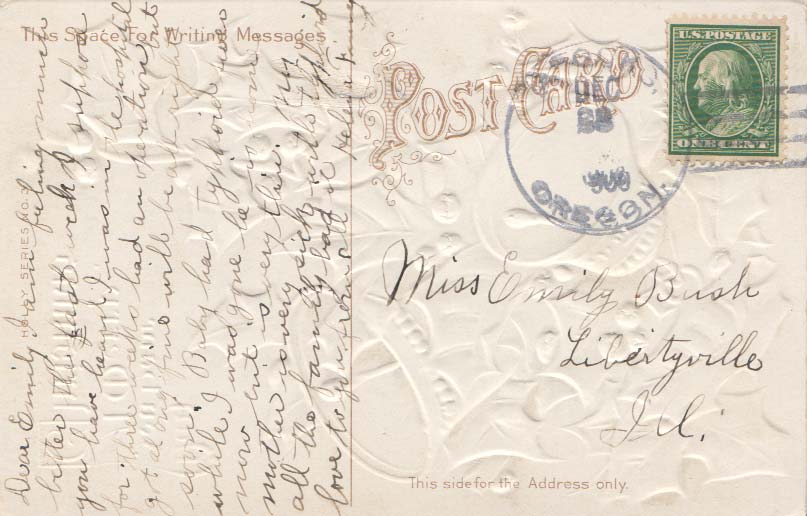 This Space For Writing Messages.
HOLLY SERIES NO.
Dear Emily, I am feeling much
better the past week I suppose
you have heard I was in the hospital
for three weeks had an operation but
got along fine will be all right
soon, Baby had typhoid fever
while I was gone he is home
now but is very thin. My
mother is very sick with typhoid
all the family had it
love to you from all Helen
POST CARD
DEC
23
OREGON.
U.S. POSTAGE
ONE CENT
Miss Emily Bush
Libertyville
Ill.
This side for the Address only.